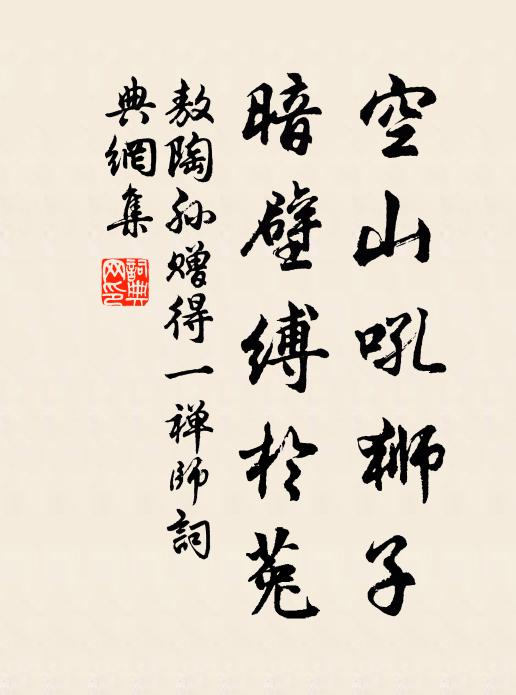 空山吼狮子
暗壁縛於菟
敖陶孙赠得一禅師詞
典網集
詞典網印